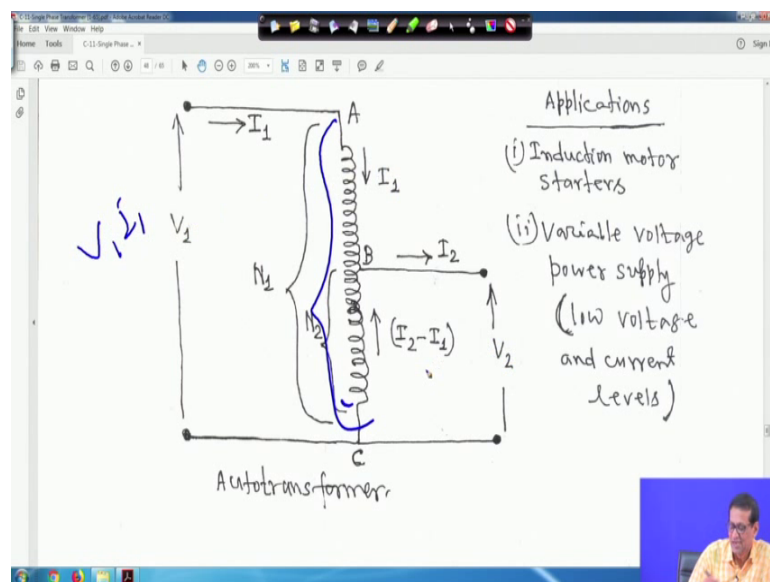 C-11-Single Phase Transformer (1-65).pdf - Adobe Acrobat Reader DC
File Edit View Window Help
Home Tools C-11-Single Phase ... × Sign
48 / 65 200%
A
→ I₁
I₁
V₁ i₁
V₁
B
→ I₂
N₁
N₂
(I₂-I₁)
V₂
C
Autotransformer.
Applications
(i) Induction motor
starters
(ii) Variable voltage
power supply
(low voltage
and current
levels)